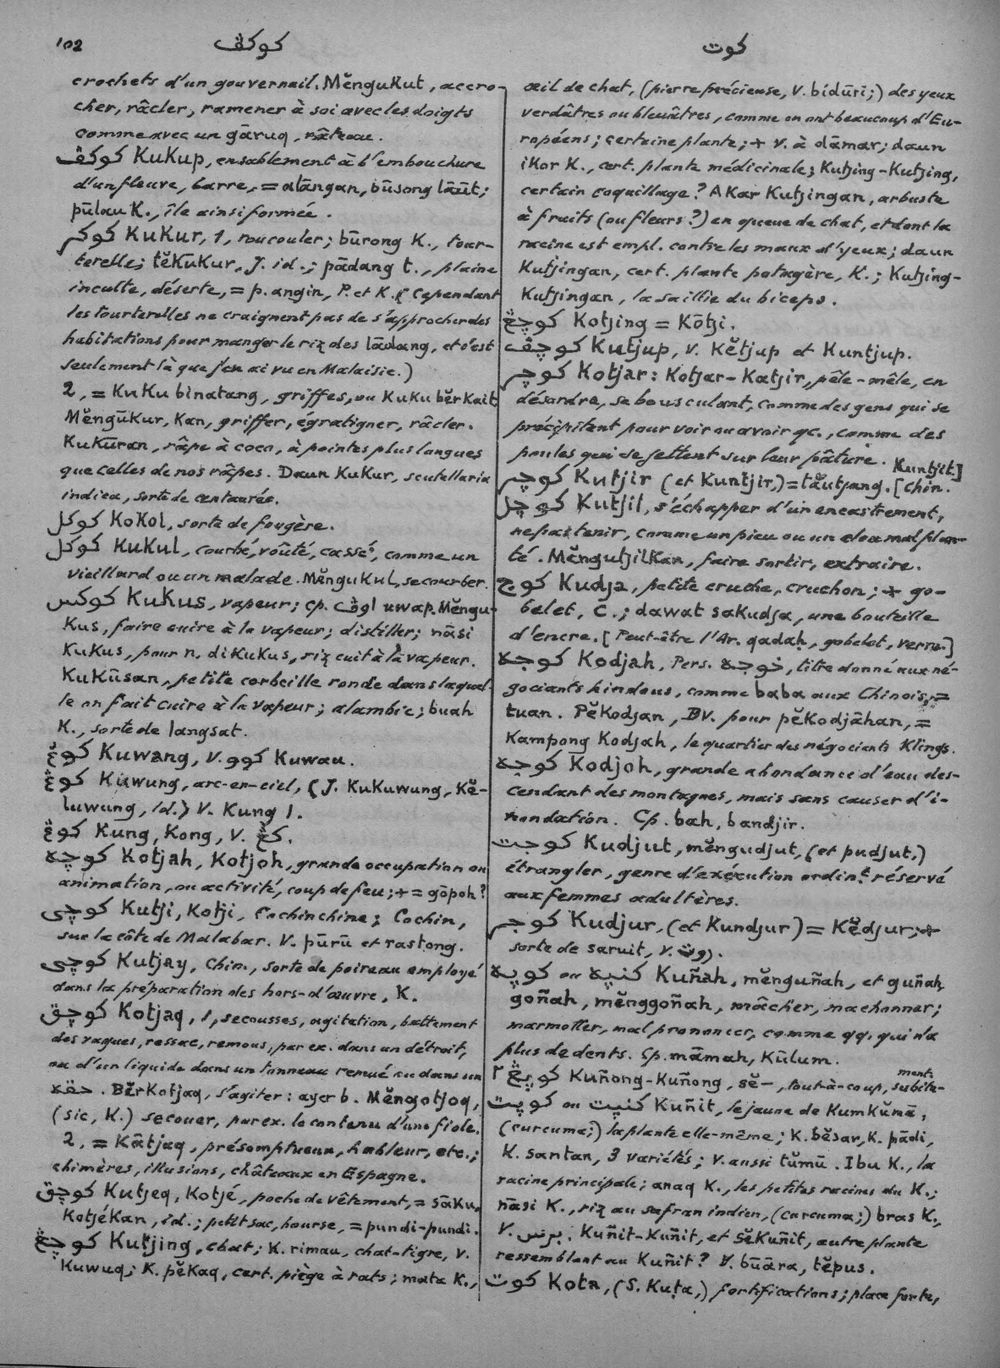 102
كوكڤ
كوت
crochets d'un gouvernail. Mĕngukut, accro-
cher, râcler, ramener à soi avec les doigts
comme avec un gāruq, râteau.
كوكڤ Kukup, ensablement à l'embouchure
d'un fleuve, barre, = alāngan, būsong lāūt;
pūlau K., île ainsi formée.
كوكر Kukur, 1, roucouler; būrong K., tour-
terelle; tĕkūkur, J. id.; pādang t., plaine
inculte, déserte, = p. angin, P. et K. (Cependant
les tourterelles ne craignent pas de s'approcher des
habitations pour manger le riz des lādang, et c'est
seulement là que j'en ai vu en Malaisie.)
2, = Kuku binatang, griffes, ou Kuku bĕrkait
Mĕngūkur, Kan, griffer, égratigner, râcler.
Kukūran, râpe à coco, à pointes plus longues
que celles de nos râpes. Daun Kukur, scutellaria
indica, sorte de centaurée.
كوكل Kokol, sorte de fougère.
كوكل Kukul, courbé, voûté, cassé, comme un
vieillard ou un malade. Mĕngukul, se courber.
كوكس Kukus, vapeur; cp. اوڤ uwap. Mĕngu-
Kus, faire cuire à la vapeur; distiller; nāsi
Kukus, pour n. dikukus, riz cuit à la vapeur.
Kukūsan, petite corbeille ronde dans laquel-
le on fait cuire à la vapeur; alambic; buah
K., sorte de langsat.
كوڠ Kuwang, V. كوو Kuwau.
كوڠ Kuwung, arc-en-ciel, (J. Kukuwung, Kĕ-
luwung, Id.) V. Kung 1.
كوڠ Kung, Kong, V. كڠ.
كوچه Kotjah, Kotjoh, grande occupation ou
animation, ou activité, coup de feu; + = gōpoh?
كوچي Kutji, Kotji, Cochinchine; Cochin,
sur la côte de Malabar. V. pūrū et rastong.
كوچي Kutjay, Chin., sorte de poireau employé
dans la préparation des hors-d'œuvre, K.
كوچق Kotjaq, 1, secousses, agitation, battement
des vagues, ressac, remous, par ex. dans un détroit,
ou d'un liquide dans un tonneau remué ou dans un
حقه. Bĕrkotjaq, s'agiter: ayer b. Mĕngotjoq,
(sic, K.) secouer, par ex. le contenu d'une fiole.
2, = Kātjaq, présomptueux, hâbleur, etc.;
chimères, illusions, châteaux en Espagne.
كوچق Kutjeq, Kotjé, poche de vêtement, = sāku,
Kotjékan, id.; petit sac, bourse, = pundi-pundi.
كوچڠ Kutjing, chat; K. rimau, chat-tigre, v.
Kuwuq; K. pĕkaq, cert. piège à rats; mata K.,
œil de chat, (pierre précieuse, V. bidūri;) des yeux
verdâtres ou bleuâtres, comme en ont beaucoup d'Eu-
ropéens; certaine plante; + v. à dāmar; daun
ikor K., cert. plante médicinale; Kutjing-Kutjing,
certain coquillage? Akar Kutjingan, arbuste
à fruits (ou fleurs?) en queue de chat, et dont la
racine est empl. contre les maux d'yeux; daun
Kutjingan, cert. plante potagère, K.; Kutjing-
Kutjingan, la saillie du biceps.
كوچڠ Kotjing = Kōtji.
كوچڤ Kutjup, V. Kĕtjup et Kuntjup.
كوچر Kotjar: Kotjar-Katjir, pêle-mêle, en
désordre, se bousculant, comme des gens qui se
précipitent pour voir ou avoir qc., comme des
poules qui se jettent sur leur pâture.
كوچر Kutjir (et Kuntjir,) = tăutjang. [Chin. Kuntjit]
كوچل Kutjil, s'échapper d'un encastrement,
ne pas tenir, comme un pieu ou un clou mal plan-
té. Mĕngutjilkan, faire sortir, extraire.
كوج Kudja, petite cruche, cruchon; + go-
belet, C.; dawat sakudja, une bouteille
d'encre. [Peut-être l'Ar. qadaḥ, gobelet, verre.]
كوجه Kodjah, Pers. خوجه, titre donné aux né-
gociants hindous, comme baba aux Chinois, =
tuan. Pĕkodjan, BV. pour pĕkodjāhan, =
Kampong Kodjah, le quartier des négociants Klings.
كوجه Kodjoh, grande abondance d'eau des-
cendant des montagnes, mais sans causer d'i-
nondation. Cp. bah, bandjir.
كوجت Kudjut, mĕngudjut, (et pudjut,)
étrangler, genre d'exécution ordin.t réservé
aux femmes adultères.
كوجر Kudjur, (et Kundjur) = Kĕdjur; +
sorte de saruit, V.
كوپه ou كنيه Kuñah, mĕnguñah, et guñah,
goñah, mĕnggoñah, mâcher, mâchonner;
marmotter, mal prononcer, comme qq. qui n'a
plus de dents. Cp. māmah, Kūlum.
كوپڠ٢ Kuñong-Kuñong, sĕ-, tout-à-coup, subite-
ment.
كوپت ou كنيت Kuñit, le jaune de Kumkŭmā,
(curcuma;) la plante elle-même; K. bĕsar, K. pādi,
K. santan, 3 variétés; V. aussi tŭmū. Ibu K., la
racine principale; anaq K., les petites racines du K.;
nāsi K., riz au safran indien, (curcuma;) bras K.,
V. برس. Kuñit-Kuñit, et Sĕkuñit, autre plante
ressemblant au Kuñit? V. būāra, tĕpus.
كوت Kota, (S. Kuṭa,) fortifications; place forte,